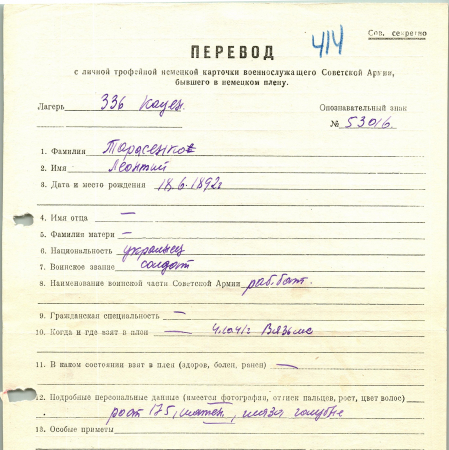 Сов. секретно
414
ПЕРЕВОД
с личной трофейной немецкой карточки военнослужащего Советской Армии,
бывшего в немецком плену.
Лагерь 336 Каунас. Опознавательный знак
№ 53016.
1. Фамилия Тарасенко
2. Имя Леонтий
3. Дата и место рождения 18.6.1892г
4. Имя отца —
5. Фамилия матери —
6. Национальность украинец
7. Воинское звание солдат
8. Наименование воинской части Советской Армии раб. бат.
9. Гражданская специальность —
10. Когда и где взят в плен — 4.10.41г Вязьма
11. В каком состоянии взят в плен (здоров, болен, ранен) —
12. Подробные персональные данные (имеется фотография, оттиск пальцев, рост, цвет волос)
рост 175, шатен, глаза голубые
13. Особые приметы